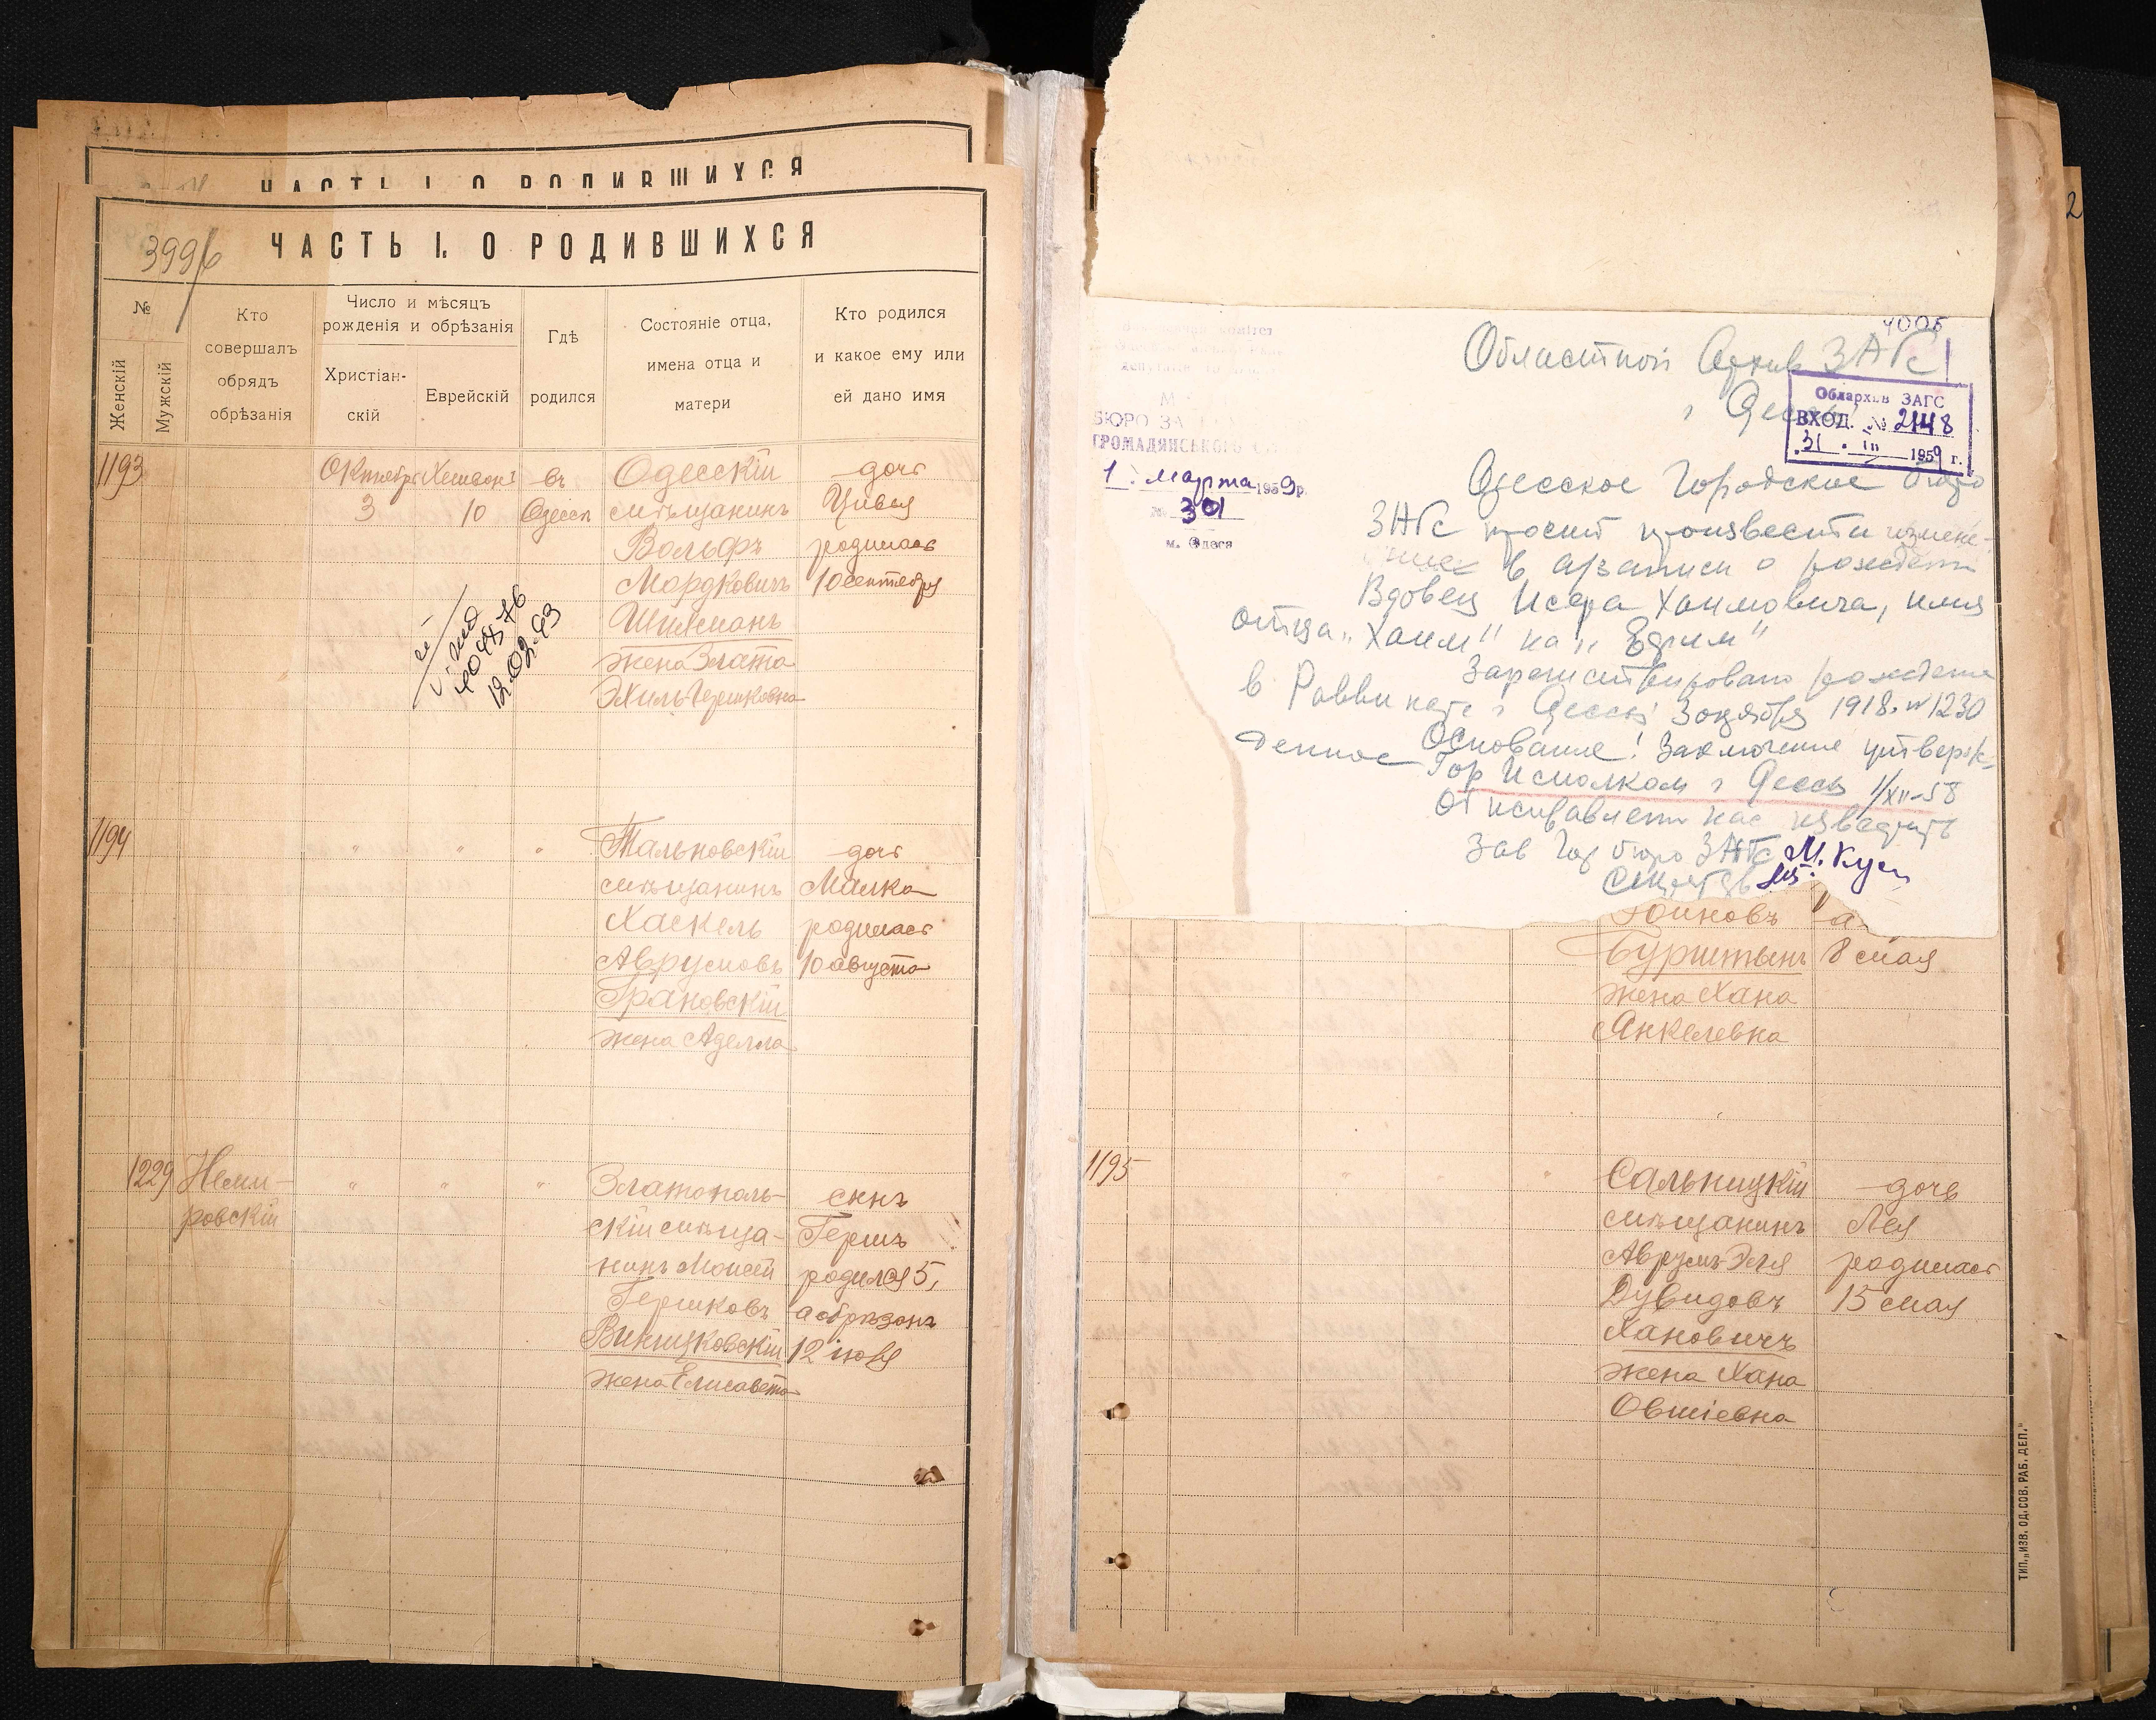 ЧАСТЬ I. О РОДИВШИХСЯ
399/б
ЧАСТЬ I. О РОДИВШИХСЯ
№
Женскій
Мужской
Кто
совершалъ
обрядъ
обрѣзанія
Число и мѣсяцъ
рожденія и обрѣзанія
Христіан-
скій
Еврейскій
Гдѣ
родился
Состояніе отца,
имена отца и
матери
Кто родился
и какое ему или
ей дано имя
1193
Октябрь
3
10
въ
Одессѣ
Одесскій
мѣщанинъ
Вольфъ
Мордковичъ
Шихманъ
жена Злата
Эхиль Гершковна
дочь
Цивья
родилась
10 сентября
12.02.93
1194
" " "
Тальновскій
мѣщанинъ
Хаскель
Аврумовъ
Грановскій
жена Аделла
дочь
Малка
родилась
10 августа
1229
Неми-
ровскій
" " "
Златополь-
скій мѣща-
нинъ Моисей
Гершковъ
Винницковскій
жена Елисавета
сынъ
Гершъ
родился 5,
а обрѣзанъ
12 іюля
4005
Областной Архив ЗАГС
г. Одессы
Облархив ЗАГС
ВХОД. № 2148
31. III 1959 г.
БЮРО ЗА
ГРОМАДЯНСЬКОГО
1. марта 1959р.
№ 301
м. Одеса
Одесское Городское бюро
ЗАГС просит произвести измене-
ние в а/записи о рождении
Вдовец Исера Хаимовича, имя
отца „Хаим" на „Ефим"
Зарегистрировано рождение
в Раввинате г. Одессы 3 октября 1918. № 1230
Основание: Заключение утверж-
денное Гор Исполком г. Одессы 1/XII-58
Об исправлении нас известить
Зав Гор бюро ЗАГС М.
Бурштынъ
жена Хана
Янкелевна
8 мая
1195
" " "
Сальницкій
мѣщанинъ
Аврумъ-Эля
Дувидовъ
Хановичъ
жена Хана
Овшіевна
дочь
Лея
родилась
15 мая
ТИП. „ИЗВ. ОД. СОВ. РАБ. ДЕП."
2